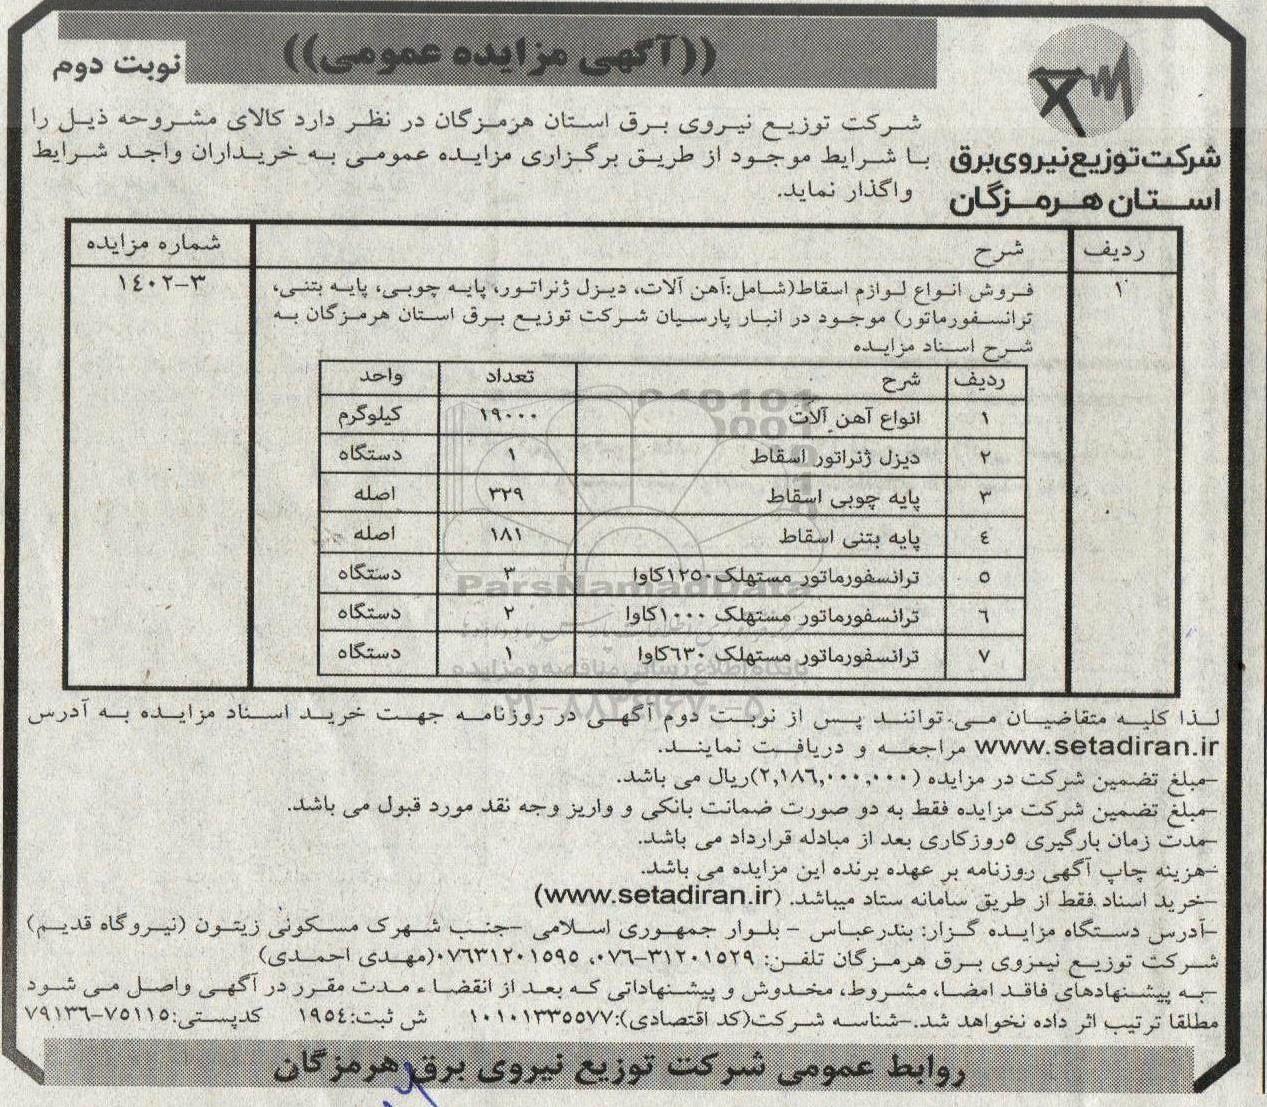 ((آگهی مزایده عمومی))
نوبت دوم
شرکت توزیع نیروی برق
استان هرمزگان
شرکت توزیع نیروی برق استان هرمزگان در نظر دارد کالای مشروحه ذیل را
با شرایط موجود از طریق برگزاری مزایده عمومی به خریداران واجد شرایط
واگذار نماید.
ردیف شرح شماره مزایده
۱ فروش انواع لوازم اسقاط(شامل:آهن آلات، دیزل ژنراتور، پایه چوبی، پایه بتنی، ۱۴۰۲-۳
ترانسفورماتور) موجود در انبار پارسیان شرکت توزیع برق استان هرمزگان به
شرح اسناد مزایده
ردیف شرح تعداد واحد
۱ انواع آهن آلات ۱۹۰۰۰ کیلوگرم
۲ دیزل ژنراتور اسقاط ۱ دستگاه
۳ پایه چوبی اسقاط ۳۲۹ اصله
۴ پایه بتنی اسقاط ۱۸۱ اصله
۵ ترانسفورماتور مستهلک ۱۲۵۰کاوا ۳ دستگاه
۶ ترانسفورماتور مستهلک ۱۰۰۰کاوا ۲ دستگاه
۷ ترانسفورماتور مستهلک ۶۳۰کاوا ۱ دستگاه
ParsNamadData
۰۲۱-۸۸۳۴۹۶۷۰-۵
لذا کلیه متقاضیان می توانند پس از نوبت دوم آگهی در روزنامه جهت خرید اسناد مزایده به آدرس
www.setadiran.ir مراجعه و دریافت نمایند.
-مبلغ تضمین شرکت در مزایده (۲,۱۸۶,۰۰۰,۰۰۰)ریال می باشد.
-مبلغ تضمین شرکت مزایده فقط به دو صورت ضمانت بانکی و واریز وجه نقد مورد قبول می باشد.
-مدت زمان بارگیری ۵روزکاری بعد از مبادله قرارداد می باشد.
-هزینه چاپ آگهی روزنامه بر عهده برنده این مزایده می باشد.
-خرید اسناد فقط از طریق سامانه ستاد میباشد. (www.setadiran.ir)
-آدرس دستگاه مزایده گزار: بندرعباس - بلوار جمهوری اسلامی -جنب شهرک مسکونی زیتون (نیروگاه قدیم)
شرکت توزیع نیروی برق هرمزگان تلفن: ۳۱۲۰۱۵۲۹-۰۷۶، ۰۷۶۳۱۲۰۱۵۹۵(مهدی احمدی)
-به پیشنهادهای فاقد امضا، مشروط، مخدوش و پیشنهاداتی که بعد از انقضاء مدت مقرر در آگهی واصل می شود
مطلقا ترتیب اثر داده نخواهد شد.-شناسه شرکت(کد اقتصادی):۱۰۱۰۱۳۳۵۵۷۷ ش ثبت:۱۹۵۴ کدپستی:۷۵۱۱۵-۷۹۱۳۶
روابط عمومی شرکت توزیع نیروی برق هرمزگان